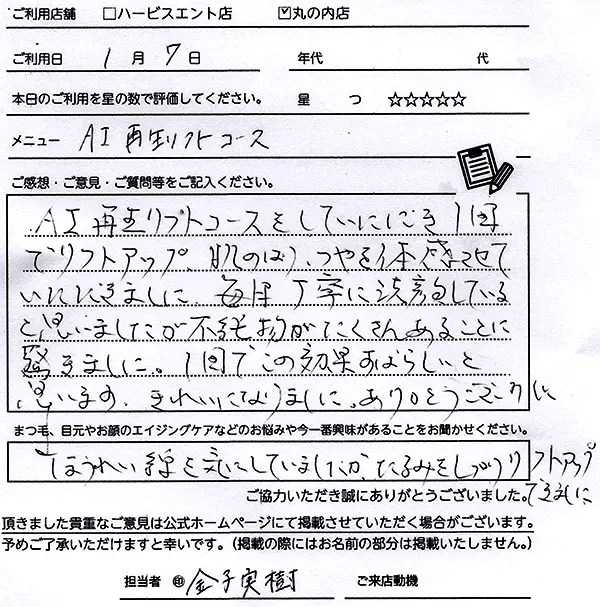 ご利用店舗 □ハービスエント店 ☑丸の内店
ご利用日 1 月 7 日 年代 代
本日のご利用を星の数で評価してください。 星 つ ☆☆☆☆☆
メニュー AI再生リフトコース
ご感想・ご意見・ご質問等をご記入ください。
AI再生リフトコースをしていただき1回
でリフトアップ、肌のはり、つやを体感させて
いただきました。毎日丁寧に洗顔している
と思いましたが不純物がたくさんあることに
驚きました。1回でこの効果すばらしいと
思います。きれいになりました。ありがとうございました
まつ毛、目元やお顔のエイジングケアなどのお悩みや今一番興味があることをお聞かせください。
ほうれい線を気にしていましたが、たるみをしっかりリフトアップ
できました
ご協力いただき誠にありがとうございました。
頂きました貴重なご意見は公式ホームページにて掲載させていただく場合がございます。
予めご了承いただけますと幸いです。（掲載の際にはお名前の部分は掲載いたしません。）
担当者 ㊞ 金子実樹 ご来店動機